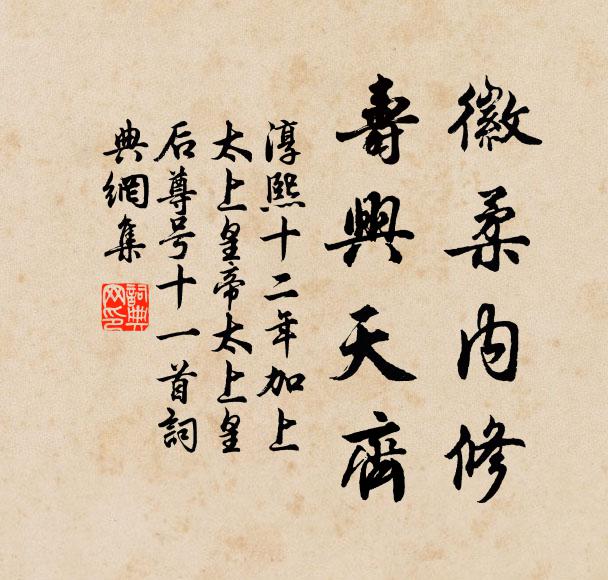 徽柔内修
壽興天齊
淳熙十二年加上
太上皇帝太上皇
后尊号十一首詞
典網集
詞典網印